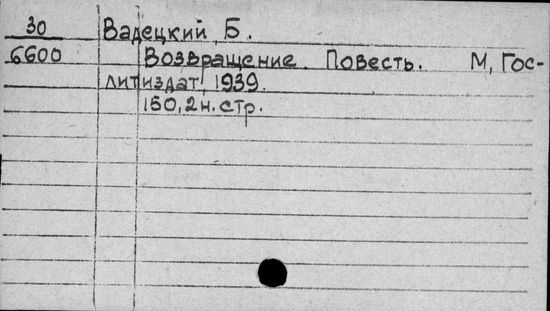 30 Вадецкий, Б.
6600 Возвращение. Повесть. М, Гос-
литиздат, 1939.
160, 2 н. стр.